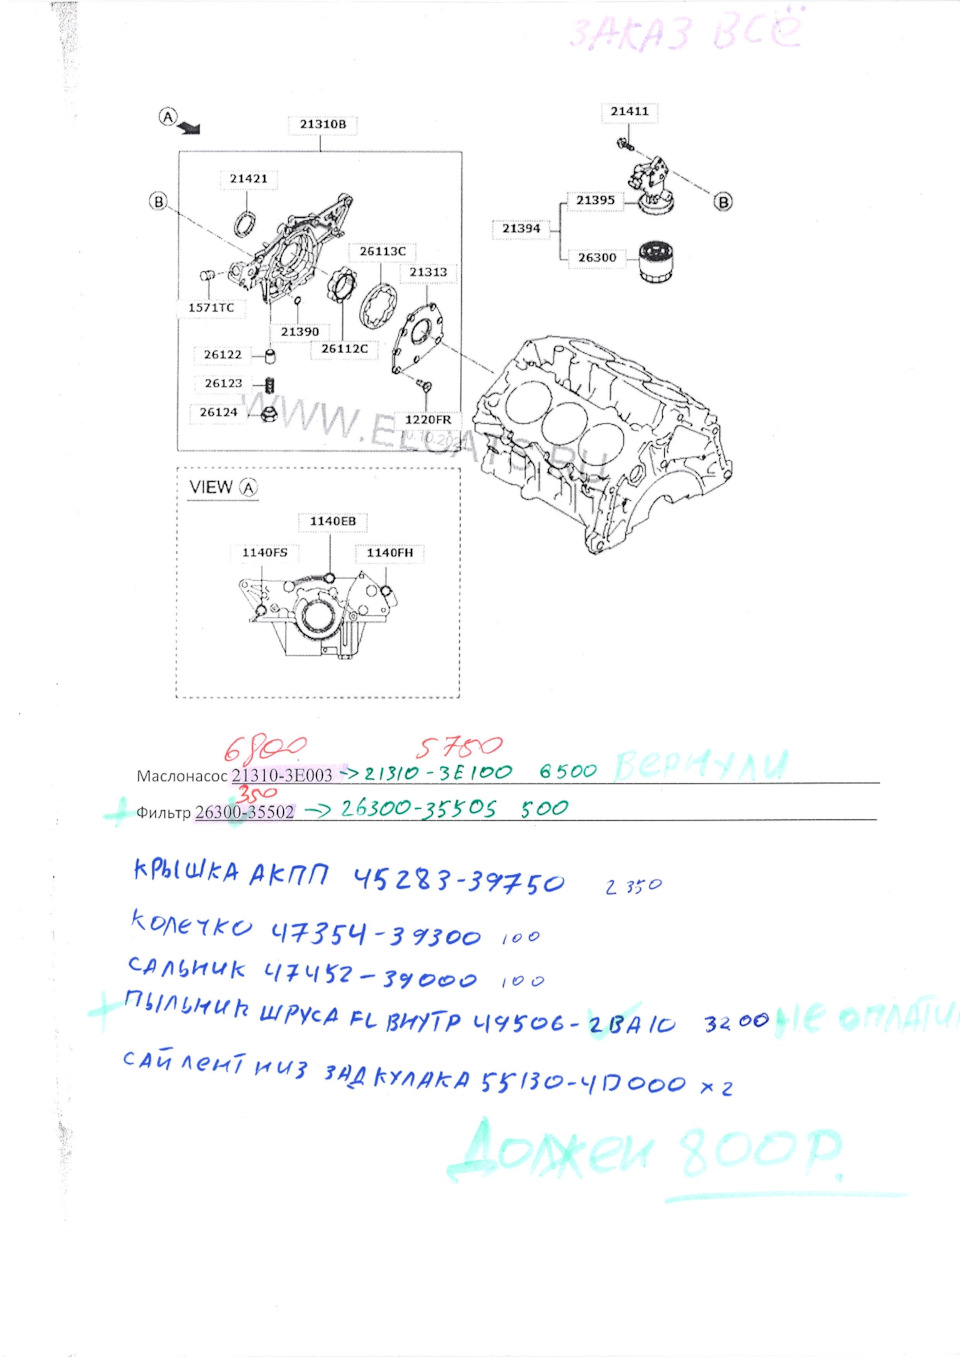 ЗАКАЗ ВСЁ
A
21310B
21411
21421
B
21395
B
21394
26113C
21313
26300
1571TC
21390
26112C
26122
26123
26124
1220FR
WWW.ELCATS.RU
VIEW A
1140EB
1140FS
1140FH
6800 5750
Маслонасос 21310-3E003 -> 21310-3E100 6500 ВЕРНУЛИ
350
+ Фильтр 26300-35502 -> 26300-35505 500
КРЫШКА АКПП 45283-39750 2 350
КОЛЕЧКО 47354-39300 100
САЛЬНИК 47452-39000 100
+ ПЫЛЬНИК ШРУСА FL ВНУТР 49506-2BA10 3200 НЕ ОПЛАТИ
САЙЛЕНТ НИЗ ЗАД КУЛАКА 55130-4D000 x2
ДОЛЖЕН 800Р.